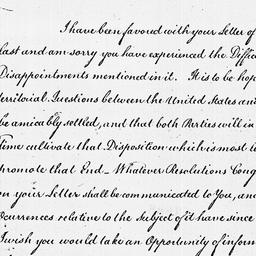 I have been favoured with your Letter of
last and am sorry you have experienced the
Disappointments mentioned in it. It is to be
territorial Questions between the United States
be amicably settled, and that both Parties will in
Time cultivate that Disposition which is most
promote that End_ Whatever Resolutions
on your Letter shall be communicated to you, and
relative to the Subject of it have since
I wish you would take an Opportunity of